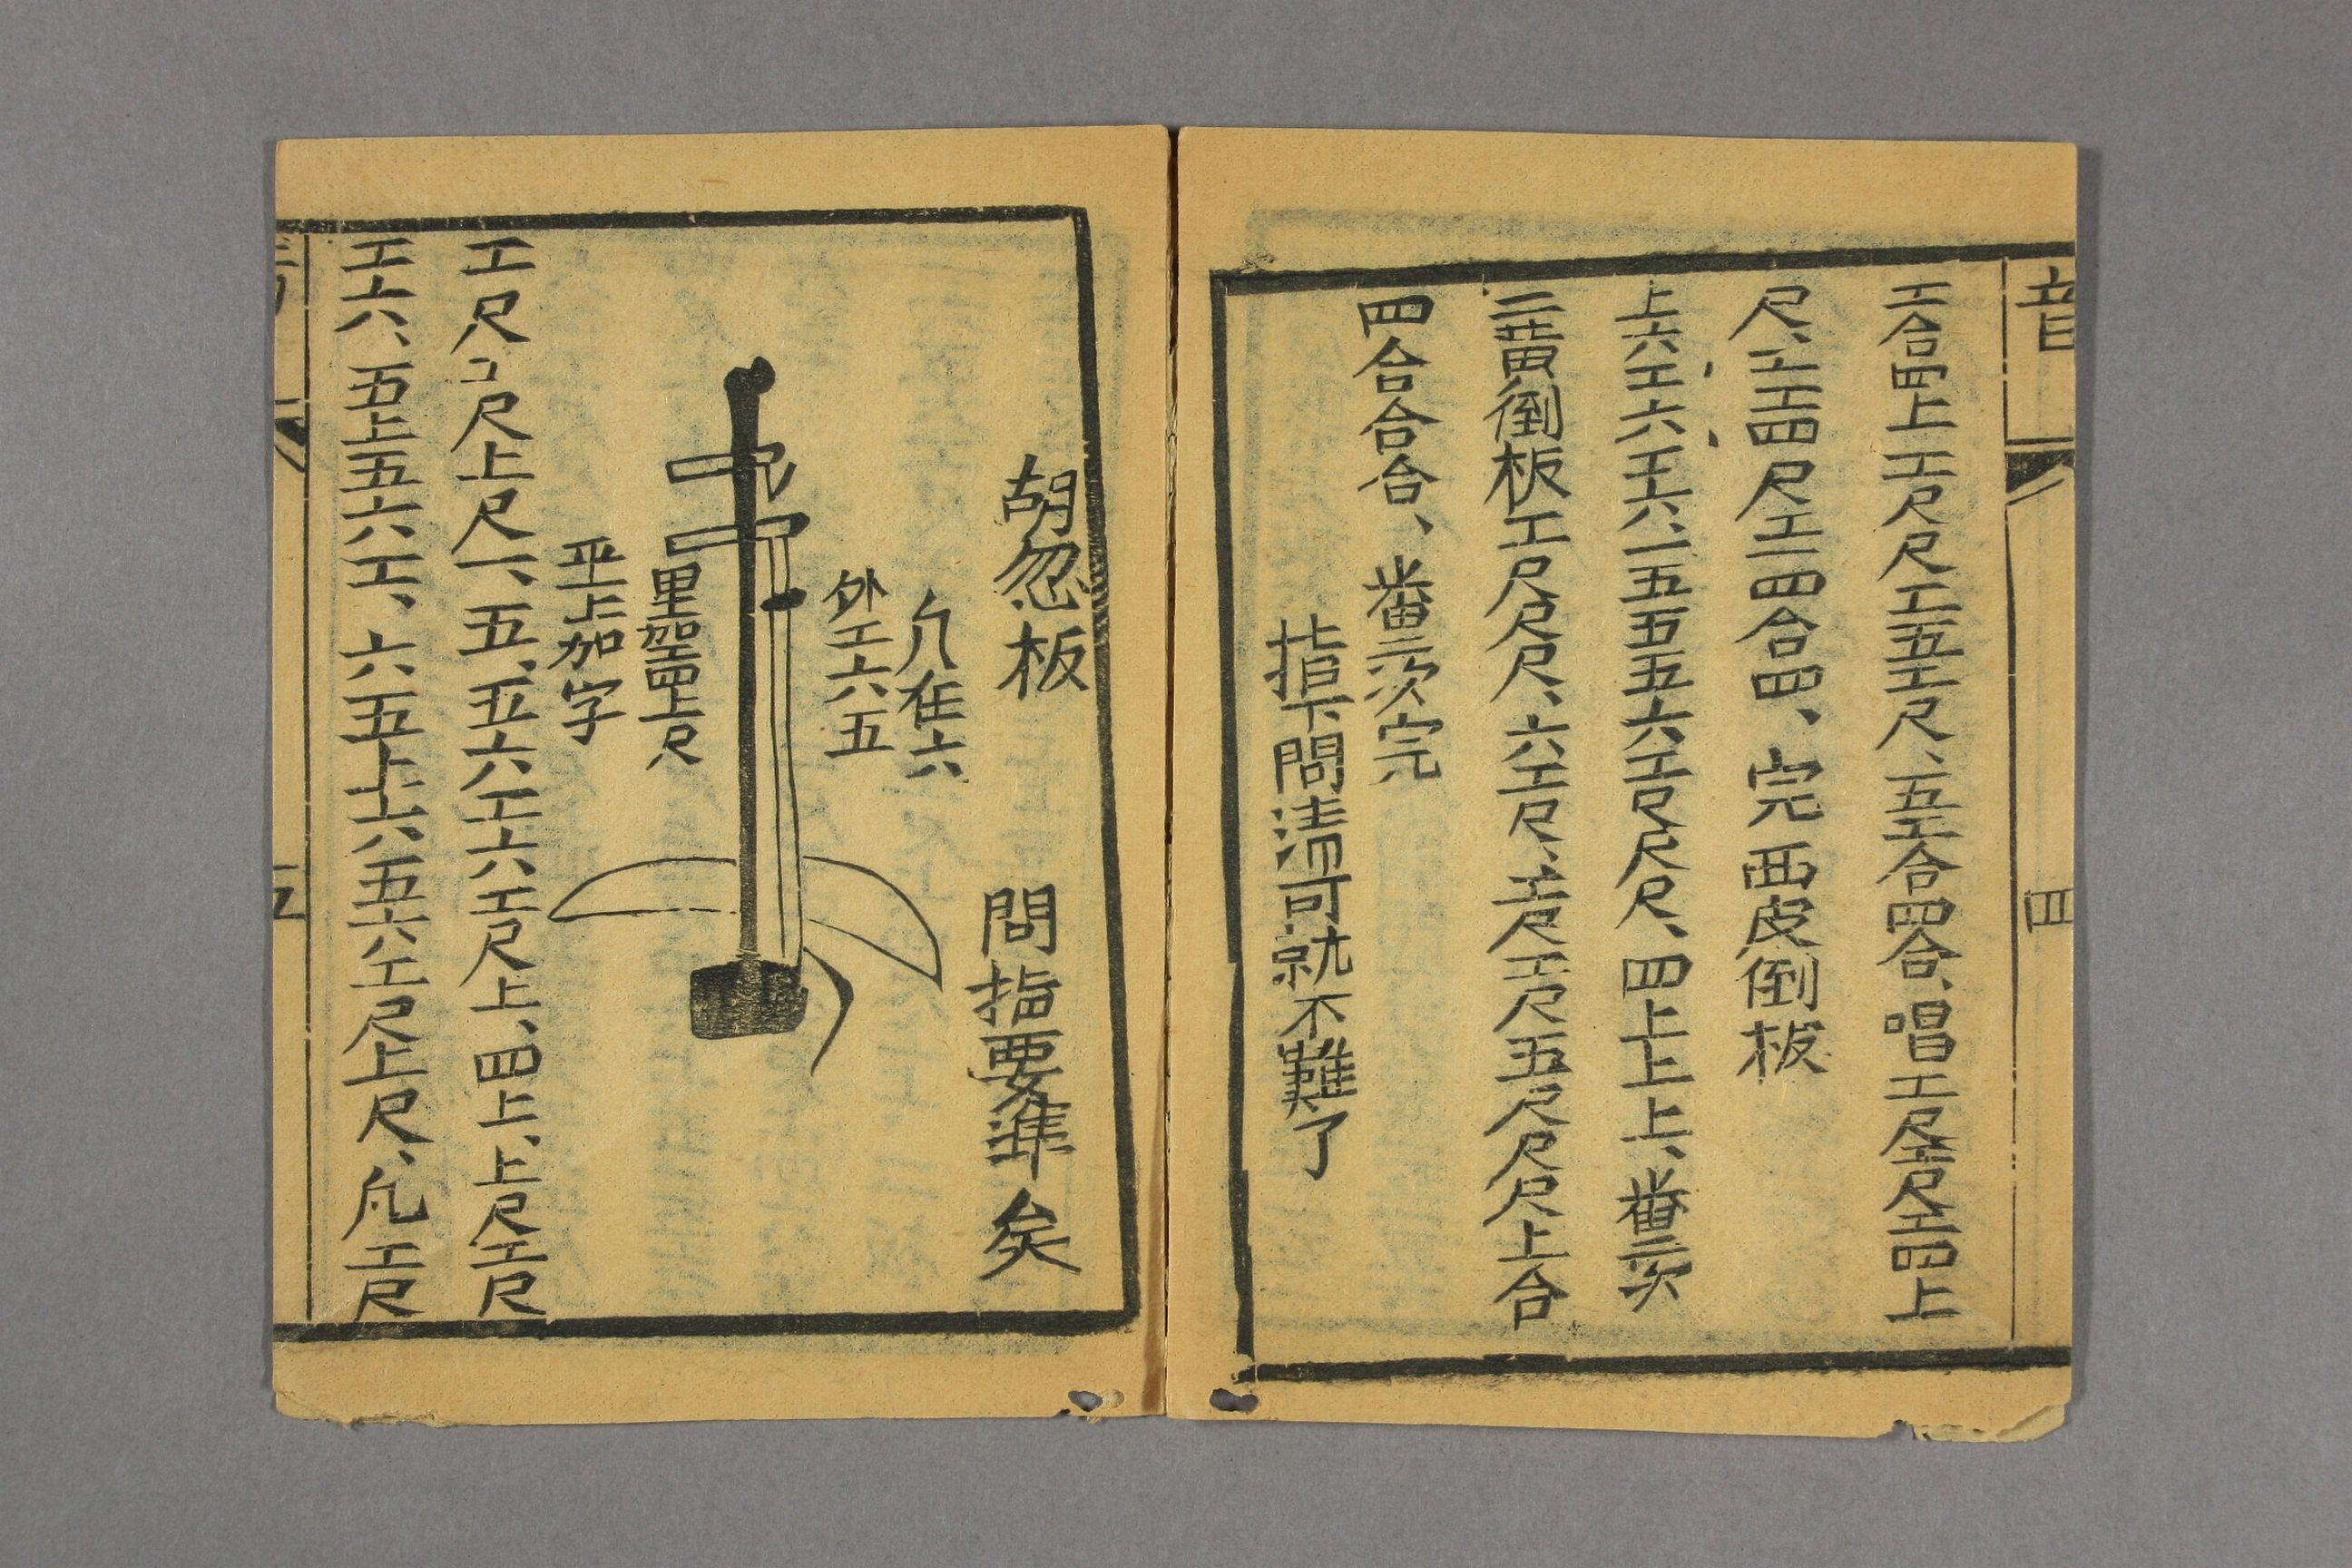 音 四
工合四上工尺尺工五工尺、五工合四合、唱工尺工尺尺工四上
尺、工工四尺工一四合四、完 西皮倒板
上六工六工六、一五五五六工尺尺尺、四上上上、畨二次
二黄倒板工尺尺尺、六工尺、工尺工尺五尺尺尺上合
四合合合、畨二次完
指下問清可就不難了
胡忽板 問指要準矣
外工六五
平上加字
工尺工尺上尺一、五、五六工六工尺上、四上、上尺工尺
工六、五上五六工、六五上上六、五六工尺上尺、凡工尺
五